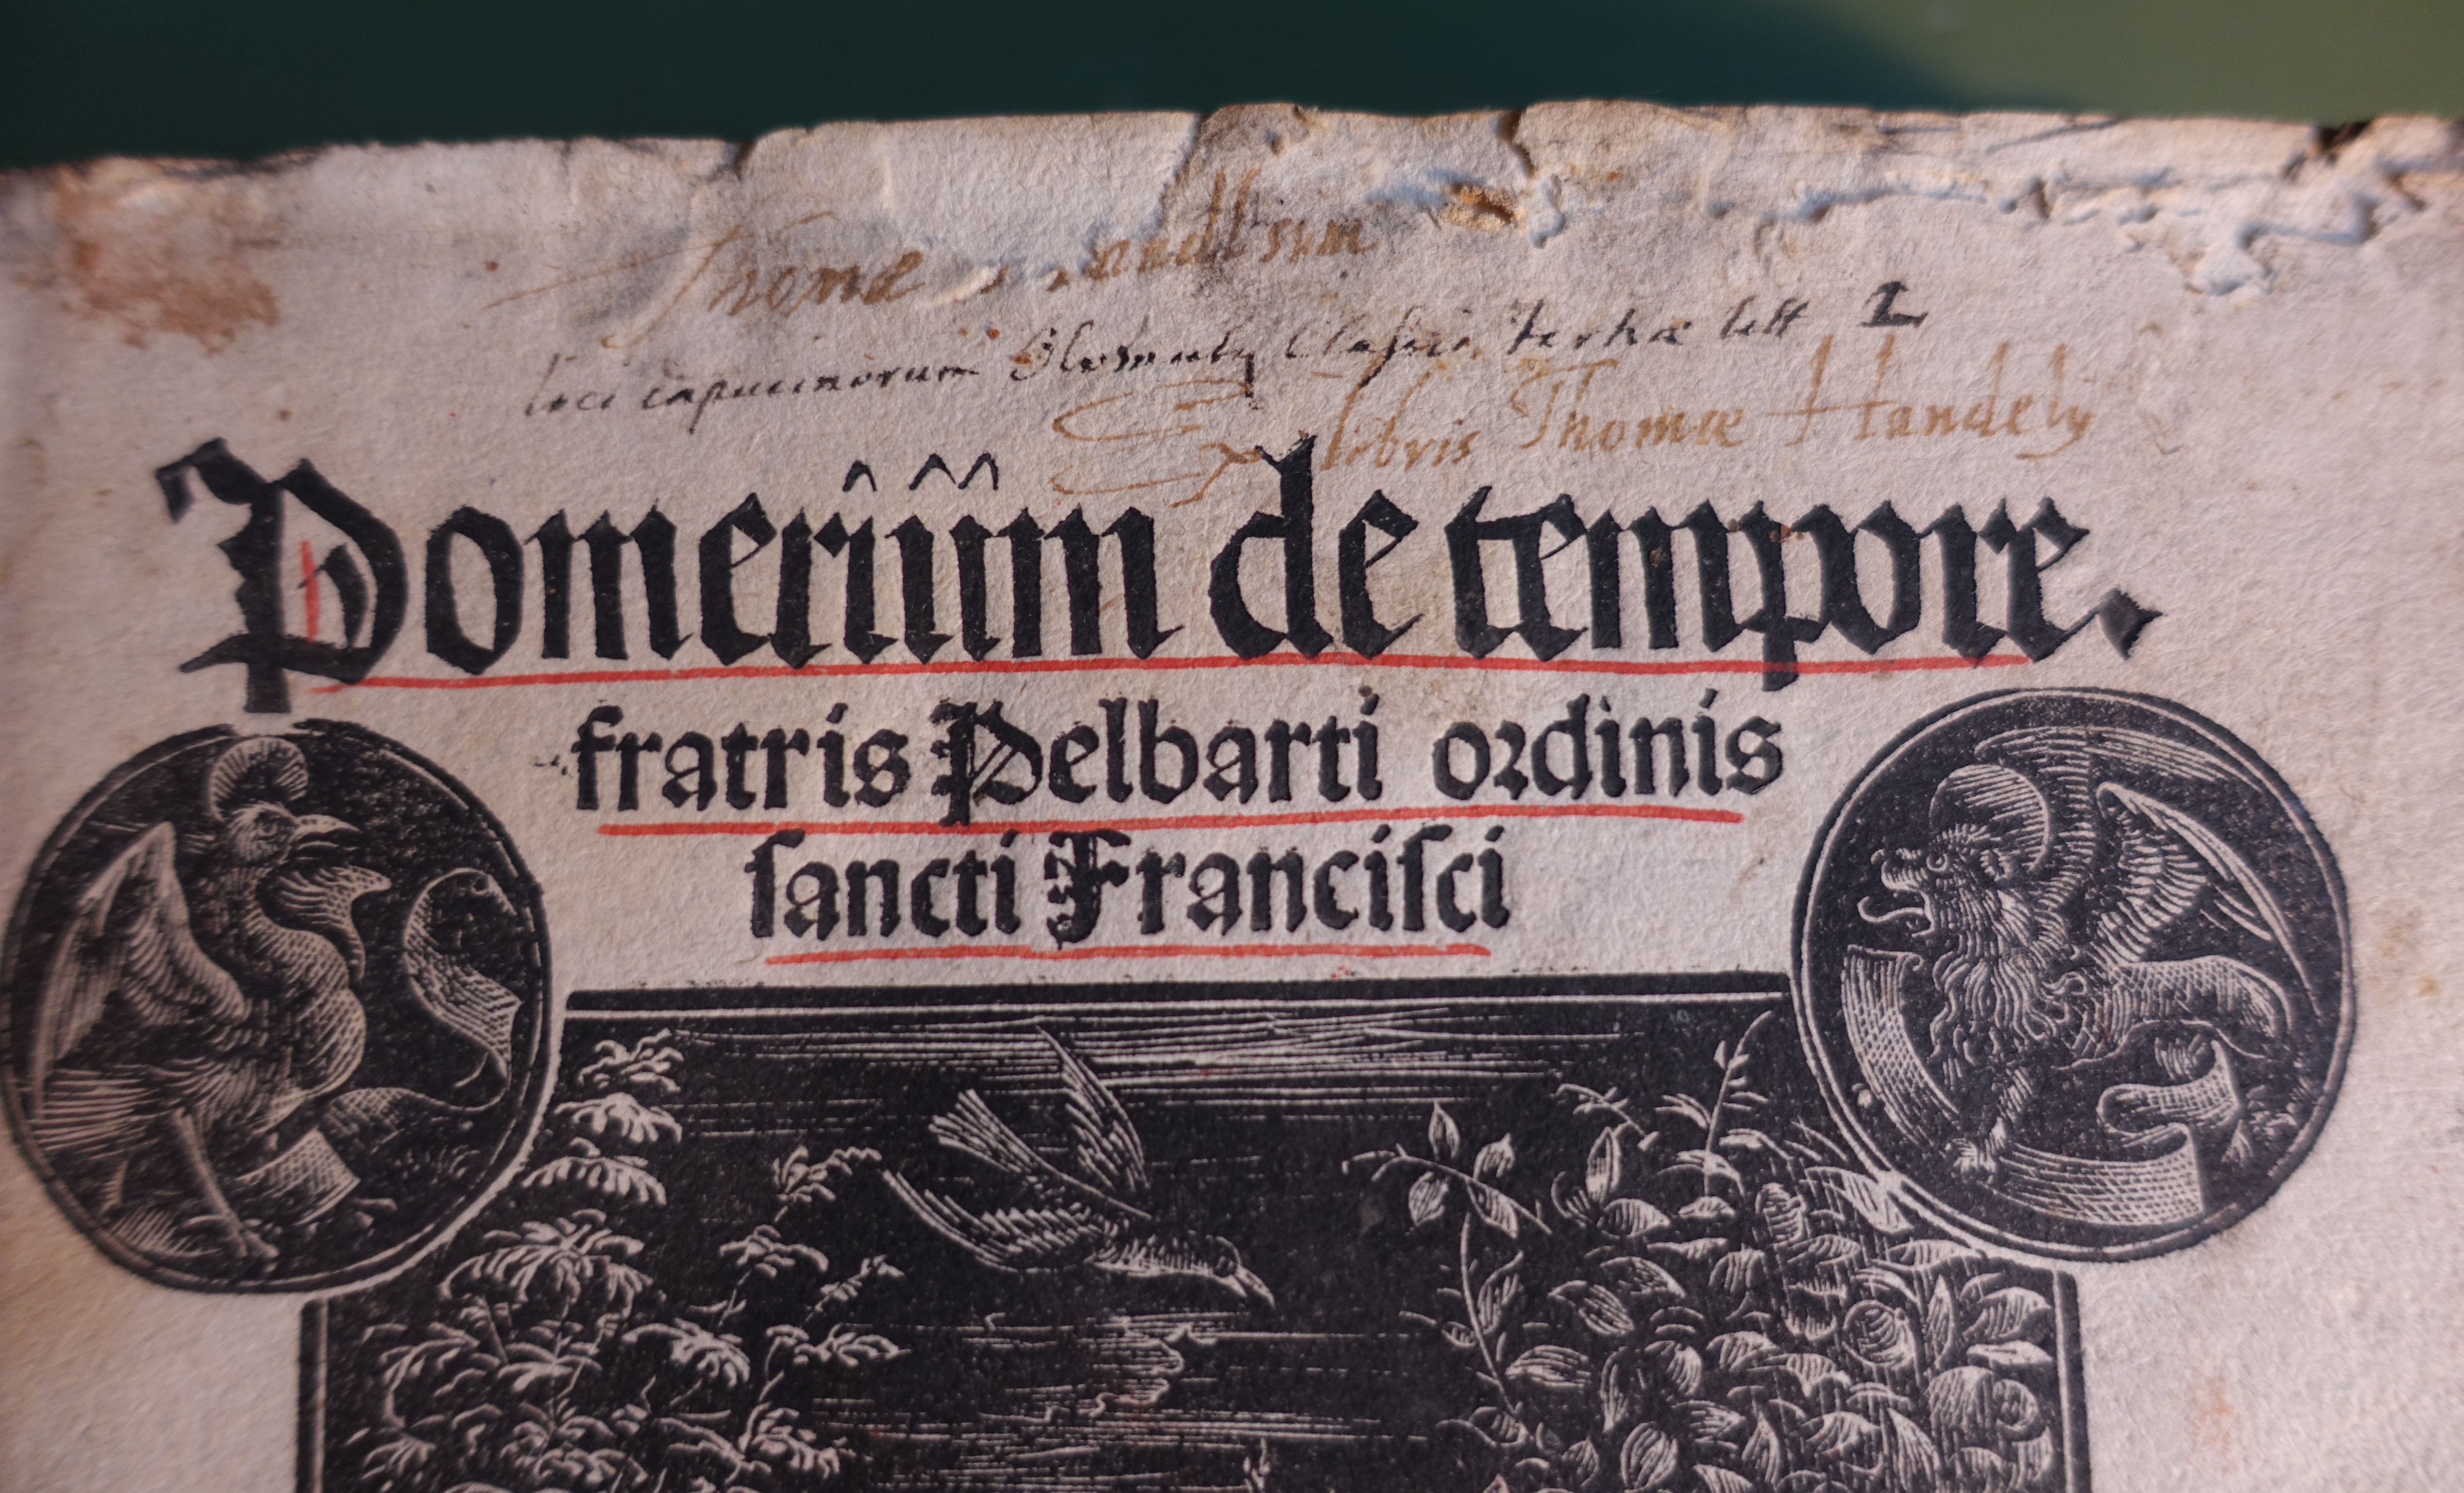 Thomæ
loci capucinorum Olomutij Classis tertiæ litt L
Ex libris Thomæ Handelÿ
Pomeriũm de tempore.
fratris Pelbarti ordinis
ſancti Franciſci